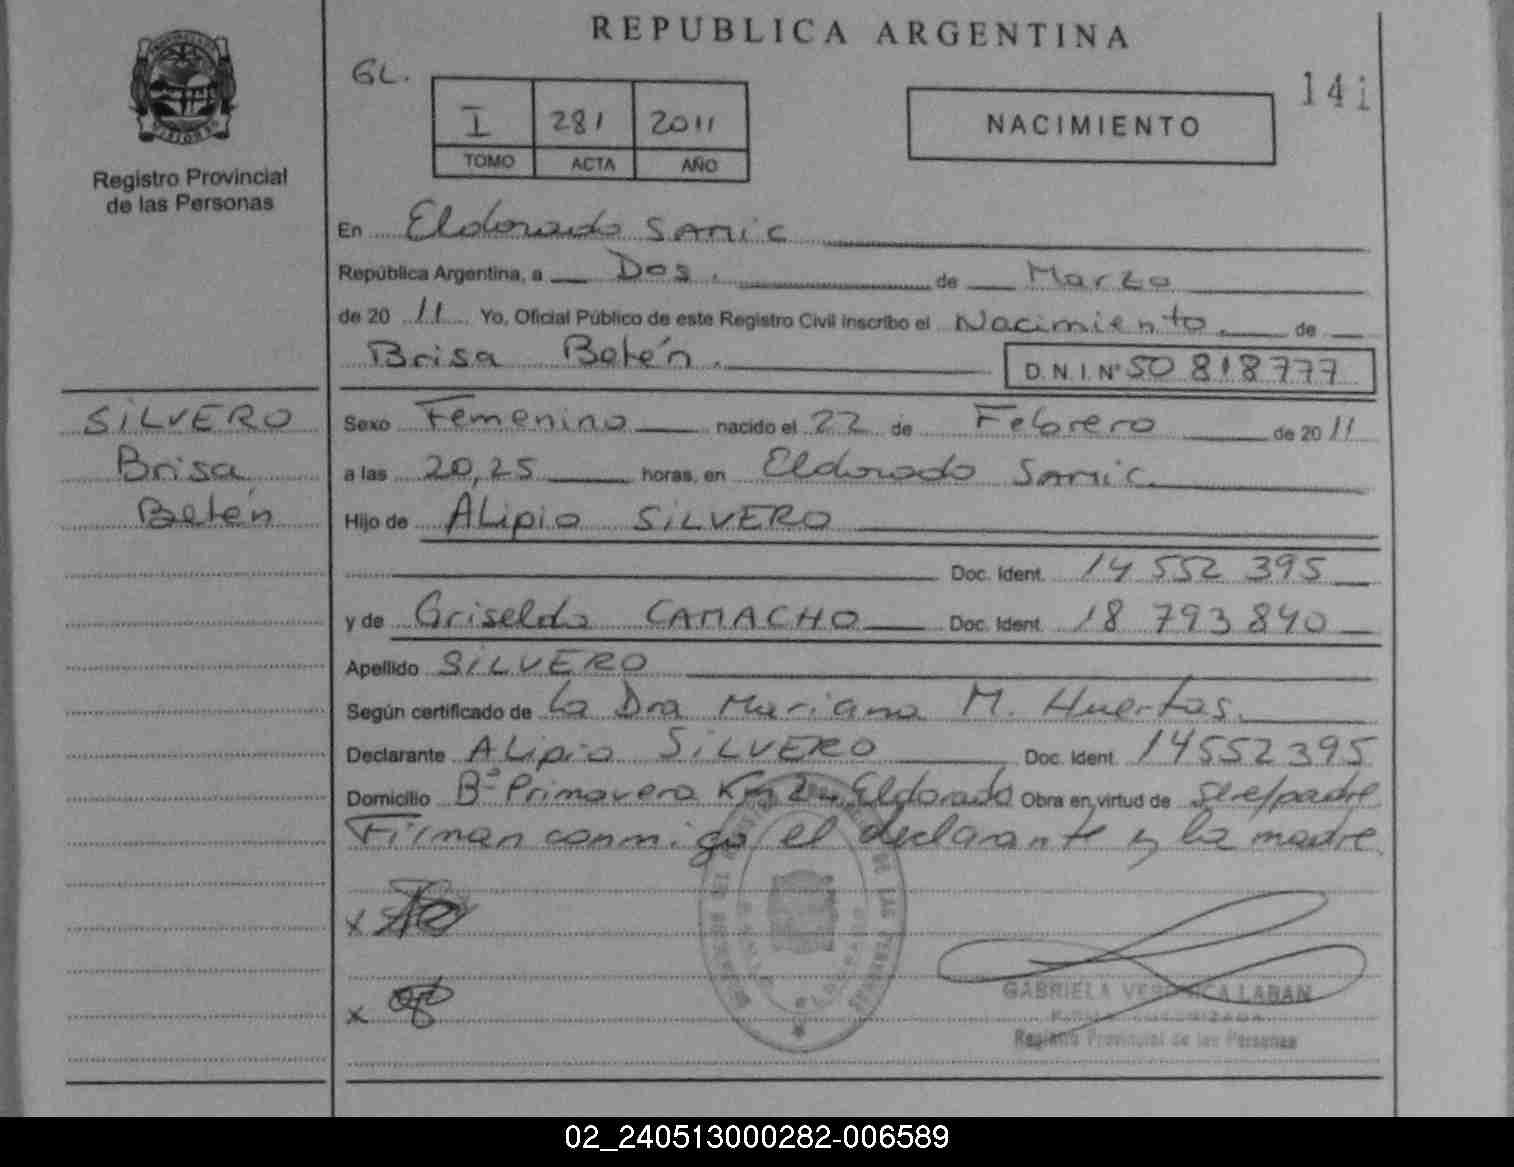 REPUBLICA ARGENTINA
GL.
141
I 281 2011
TOMO ACTA AÑO
NACIMIENTO
Registro Provincial
de las Personas
En Eldorado SAMIC
República Argentina, a Dos. de Marzo
de 2011 Yo, Oficial Público de este Registro Civil inscribo el Nacimiento de
Brisa Belén. D.N.I. Nº 50 818 777
SILVERO
Brisa
Belén
Sexo Femenino nacido el 22 de Febrero de 2011
a las 20,25 horas, en Eldorado SAMIC
Hijo de ALipio SILVERO
Doc. Ident. 14 552 395
y de Griselda CAMACHO Doc. Ident. 18 793 840
Apellido SILVERO
Según certificado de La Dra Mariana M. Huertas.
Declarante ALipio SILVERO Doc. Ident. 14552395
Domicilio Bº Primavera Km 2 Eldorado Obra en virtud de ser el padre
Firman conmigo el declarante y la madre.
x
x
DE LAS PERSONAS
GABRIELA VERONICA LABAN
FIRMA AUTORIZADA
Registro Provincial de las Personas
02_240513000282-006589